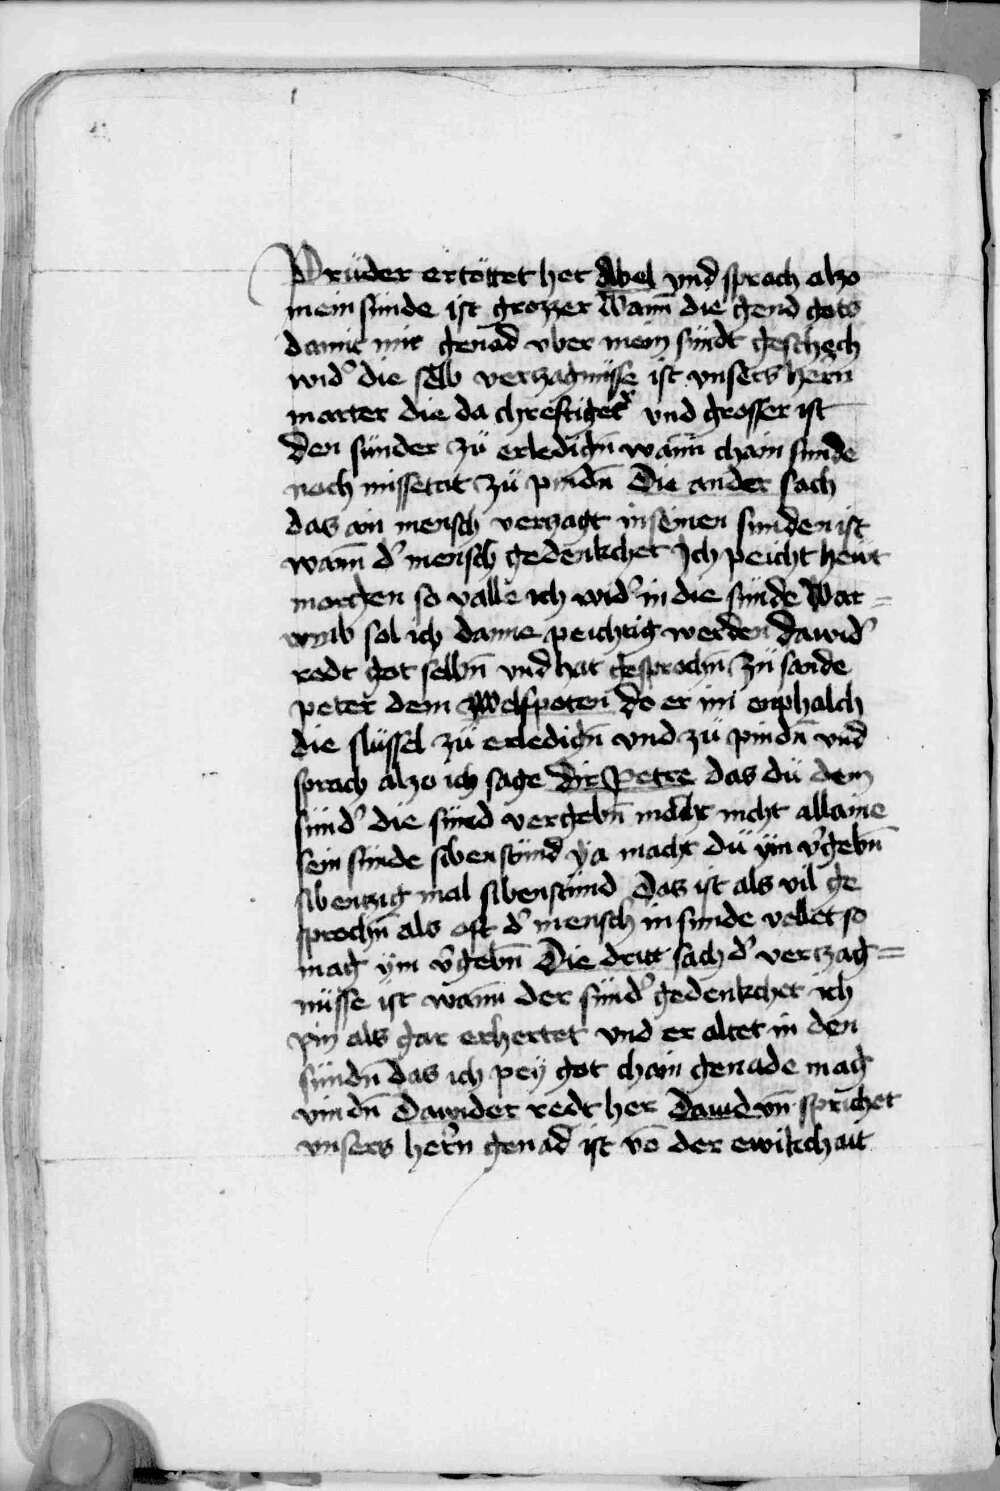 Prüder ertöttet het Abel vnd sprach alzo
mein sünde ist grozzer Wann die gend gots
damit mir genad vber mein sündt geschech
wid' die selb verzagnüsse ist vnsers hern̄
marter die da chrestiget vnd grosser ist
den sünder zü erledign̄ wann chain sunde
noch missetat zü pindn̄ Die ander sach
das ain mensch verzagt in seinen sunden ist
wann d' mensch gedenkchet Ich peicht hewt
morgen so valle ich wid' in die sünde War=
vmb sol ich danne peichtig werden dawid'
redt got selbn̄ vnd hat gesprochn̄ zü sande
peter dem zwelfpoten do er im enphalch
die slüssel zü erledign̄ vnd zü pindn̄ vnd
sprach alzo ich sage dir Petre das dü dem
sünd' die sünd vergebn̄ macht nicht allaine
sein sünde sibenstund ya macht dü ÿm v'gebn̄
sibenzig mal sibenstünd Das ist als vil ge
sprochn̄ als oft d' mensch in sunde vellet so
mag ÿm v'gebn̄ Die dritt sach d' verzag=
nüsse ist wann der sünd' gedenkchet ich
pin als gar erhertet vnd er altet in den
sündn̄ das ich peÿ got chain genade mag
vindn̄ Dawider redt her Dauid vn̄ sprichet
vnsers hern̄ genad ist vō der ewikchait